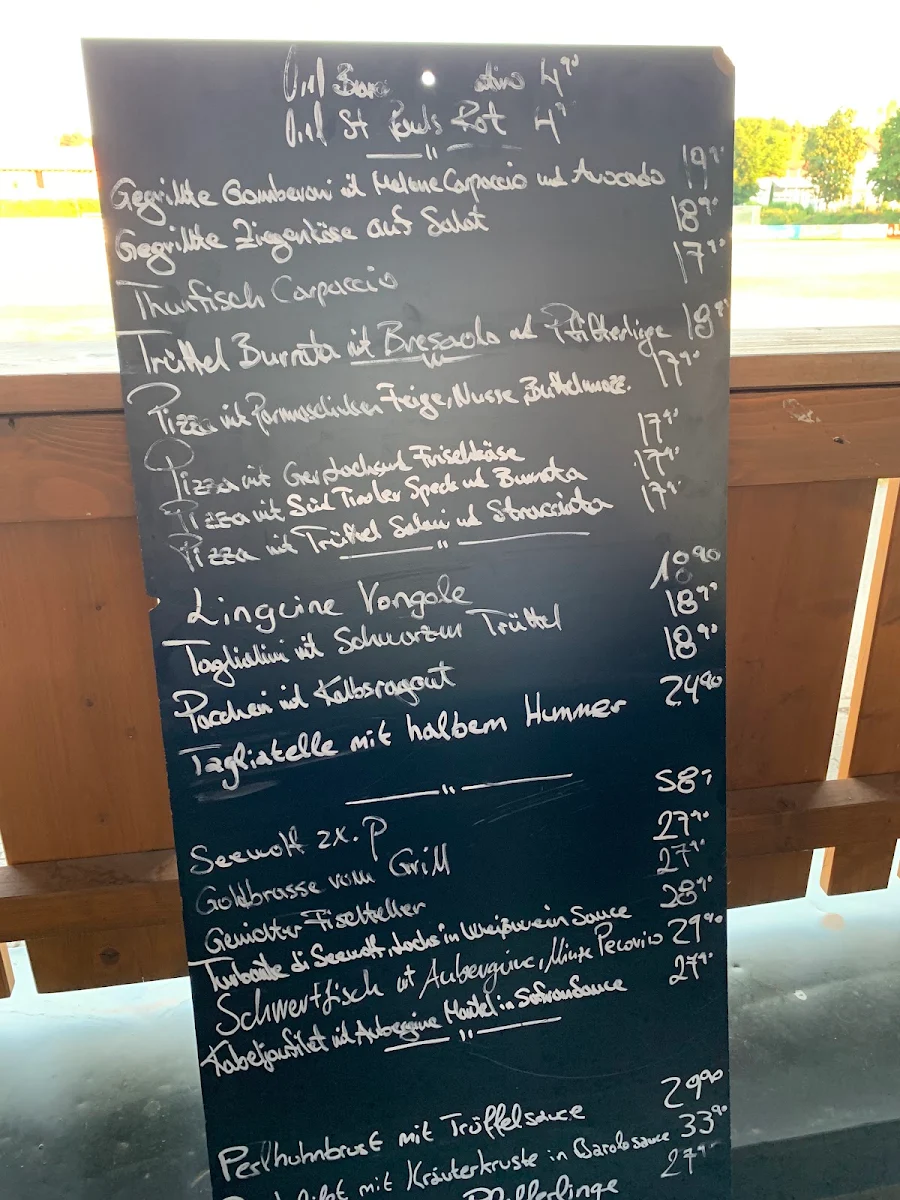 4,90
St Pauls Rot 4,9
Gegrillte Gamberoni mit Melone Carpaccio und Avocado 19,90
Gegrillte Ziegenkäse auf Salat 18,90
Thunfisch Carpaccio 17,90
Trüffel Burrata mit Bresaola und Pfifferlinge 18,90
Pizza mit Parmaschinken Feige, Nüsse, Büffelmozz. 17,90
Pizza mit Frischkäse 17,90
Pizza mit Süd Tiroler Speck und Burrata 17,90
Pizza mit Trüffel Salami und Stracciata 17,90
Linguine Vongole 18,90
Tagliolini mit Schwarzem Trüffel 18,90
Paccheri mit Kalbsragout 18,90
Tagliatelle mit halbem Hummer 24,90
Seewolf 2x. P 58,-
Goldbrasse vom Grill 27,90
Gemischter Fischteller 27,90
di Seewolf, Lachs in Weißwein Sauce 28,90
Schwertfisch mit Aubergine, Minze Pecorino 29,90
Kabeljaufilet mit Aubergine Mantel in Safran Sauce 27,90
Perlhuhnbrust mit Trüffelsauce 29,90
mit Kräuterkruste in Barolosauce 33,90
Pfifferlinge 27,90